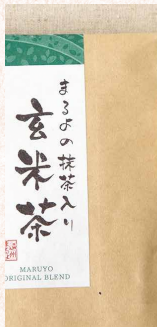 まるよの抹茶入り
玄米茶
MARUYO
ORIGINAL BLEND